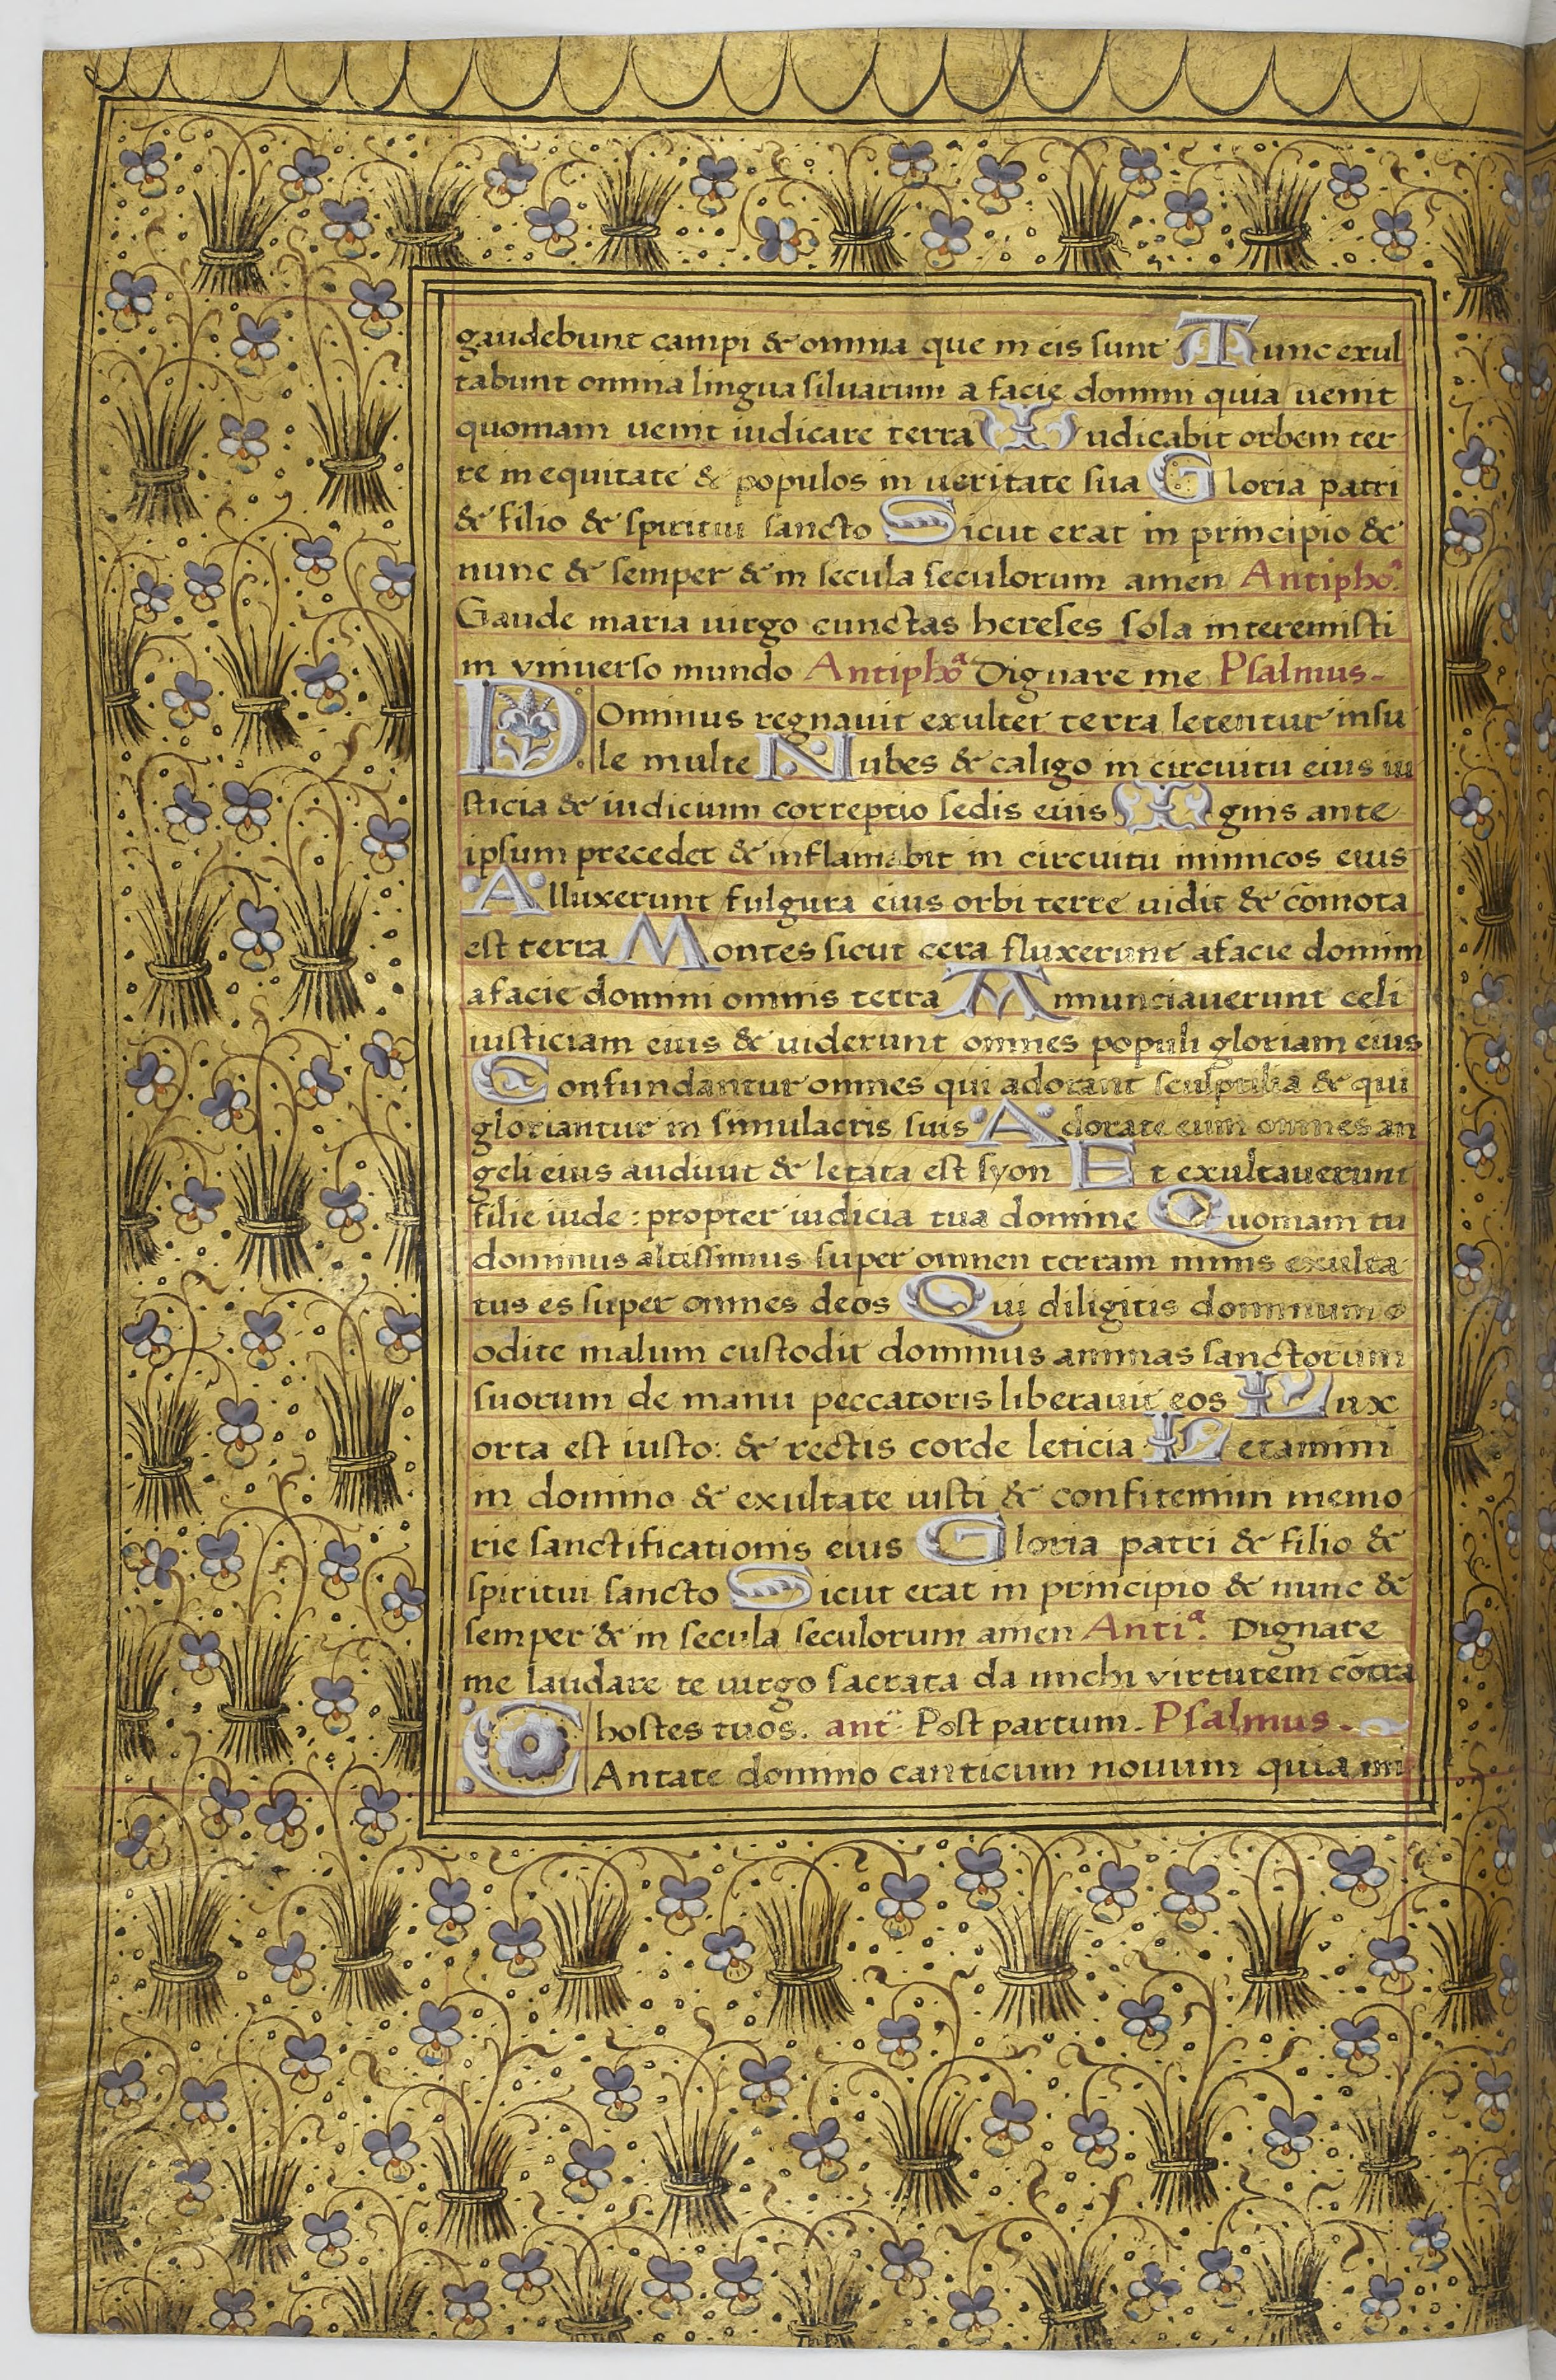 gaudebunt campi & omnia que in eis sunt Tunc exul
tabunt omnia lingua siluarum a facie domini quia uenit
quoniam uenit iudicare terra Iudicabit orbem ter
re in equitate & populos in ueritate sua Gloria patri
& filio & spiritui sancto Sicut erat in principio &
nunc & semper & in secula seculorum amen Antiphoª.
Gaude maria uirgo cunctas hereses sola interemisti
in vniuerso mundo Antiphoª Dignare me Psalmus-
DOminus regnauit exultet terra letentur insu
le multe Nubes & caligo in circuitu eius iu
sticia & iudicium correptio sedis eius Ignis ante
ipsum precedet & inflamabit in circuitu inimicos eius
Alluxerunt fulgura eius orbi terre uidit & cōmota
est terra Montes sicut cera fluxerunt afacie domini
afacie domini omnis terra Annunciauerunt celi
iusticiam eius & uiderunt omnes populi gloriam eius
Confundantur omnes qui adorant sculptilia & qui
gloriantur in simulacris suis Adorate eum omnes an
geli eius audiuit & letata est syon Et exultauerunt
filie iude: propter iudicia tua domine Quoniam tu
dominus altissimus super omnen terram nimis exulta
tus es super omnes deos Qui diligitis dominum o
odite malum custodit dominus animas sanctorum
suorum de manu peccatoris liberauit eos Lux
orta est iusto: & rectis corde leticia Letamini
in domino & exultate iusti & confitemini memo
rie sanctificationis eius Gloria patri & filio &
spiritui sancto Sicut erat in principio & nunc &
semper & in secula seculorum amen Antiª. Dignare
me laudare te uirgo sacrata da michi virtutem cōtra
hostes tuos. ant Post partum. Psalmus-
CAntate domino canticum nouum quia mi